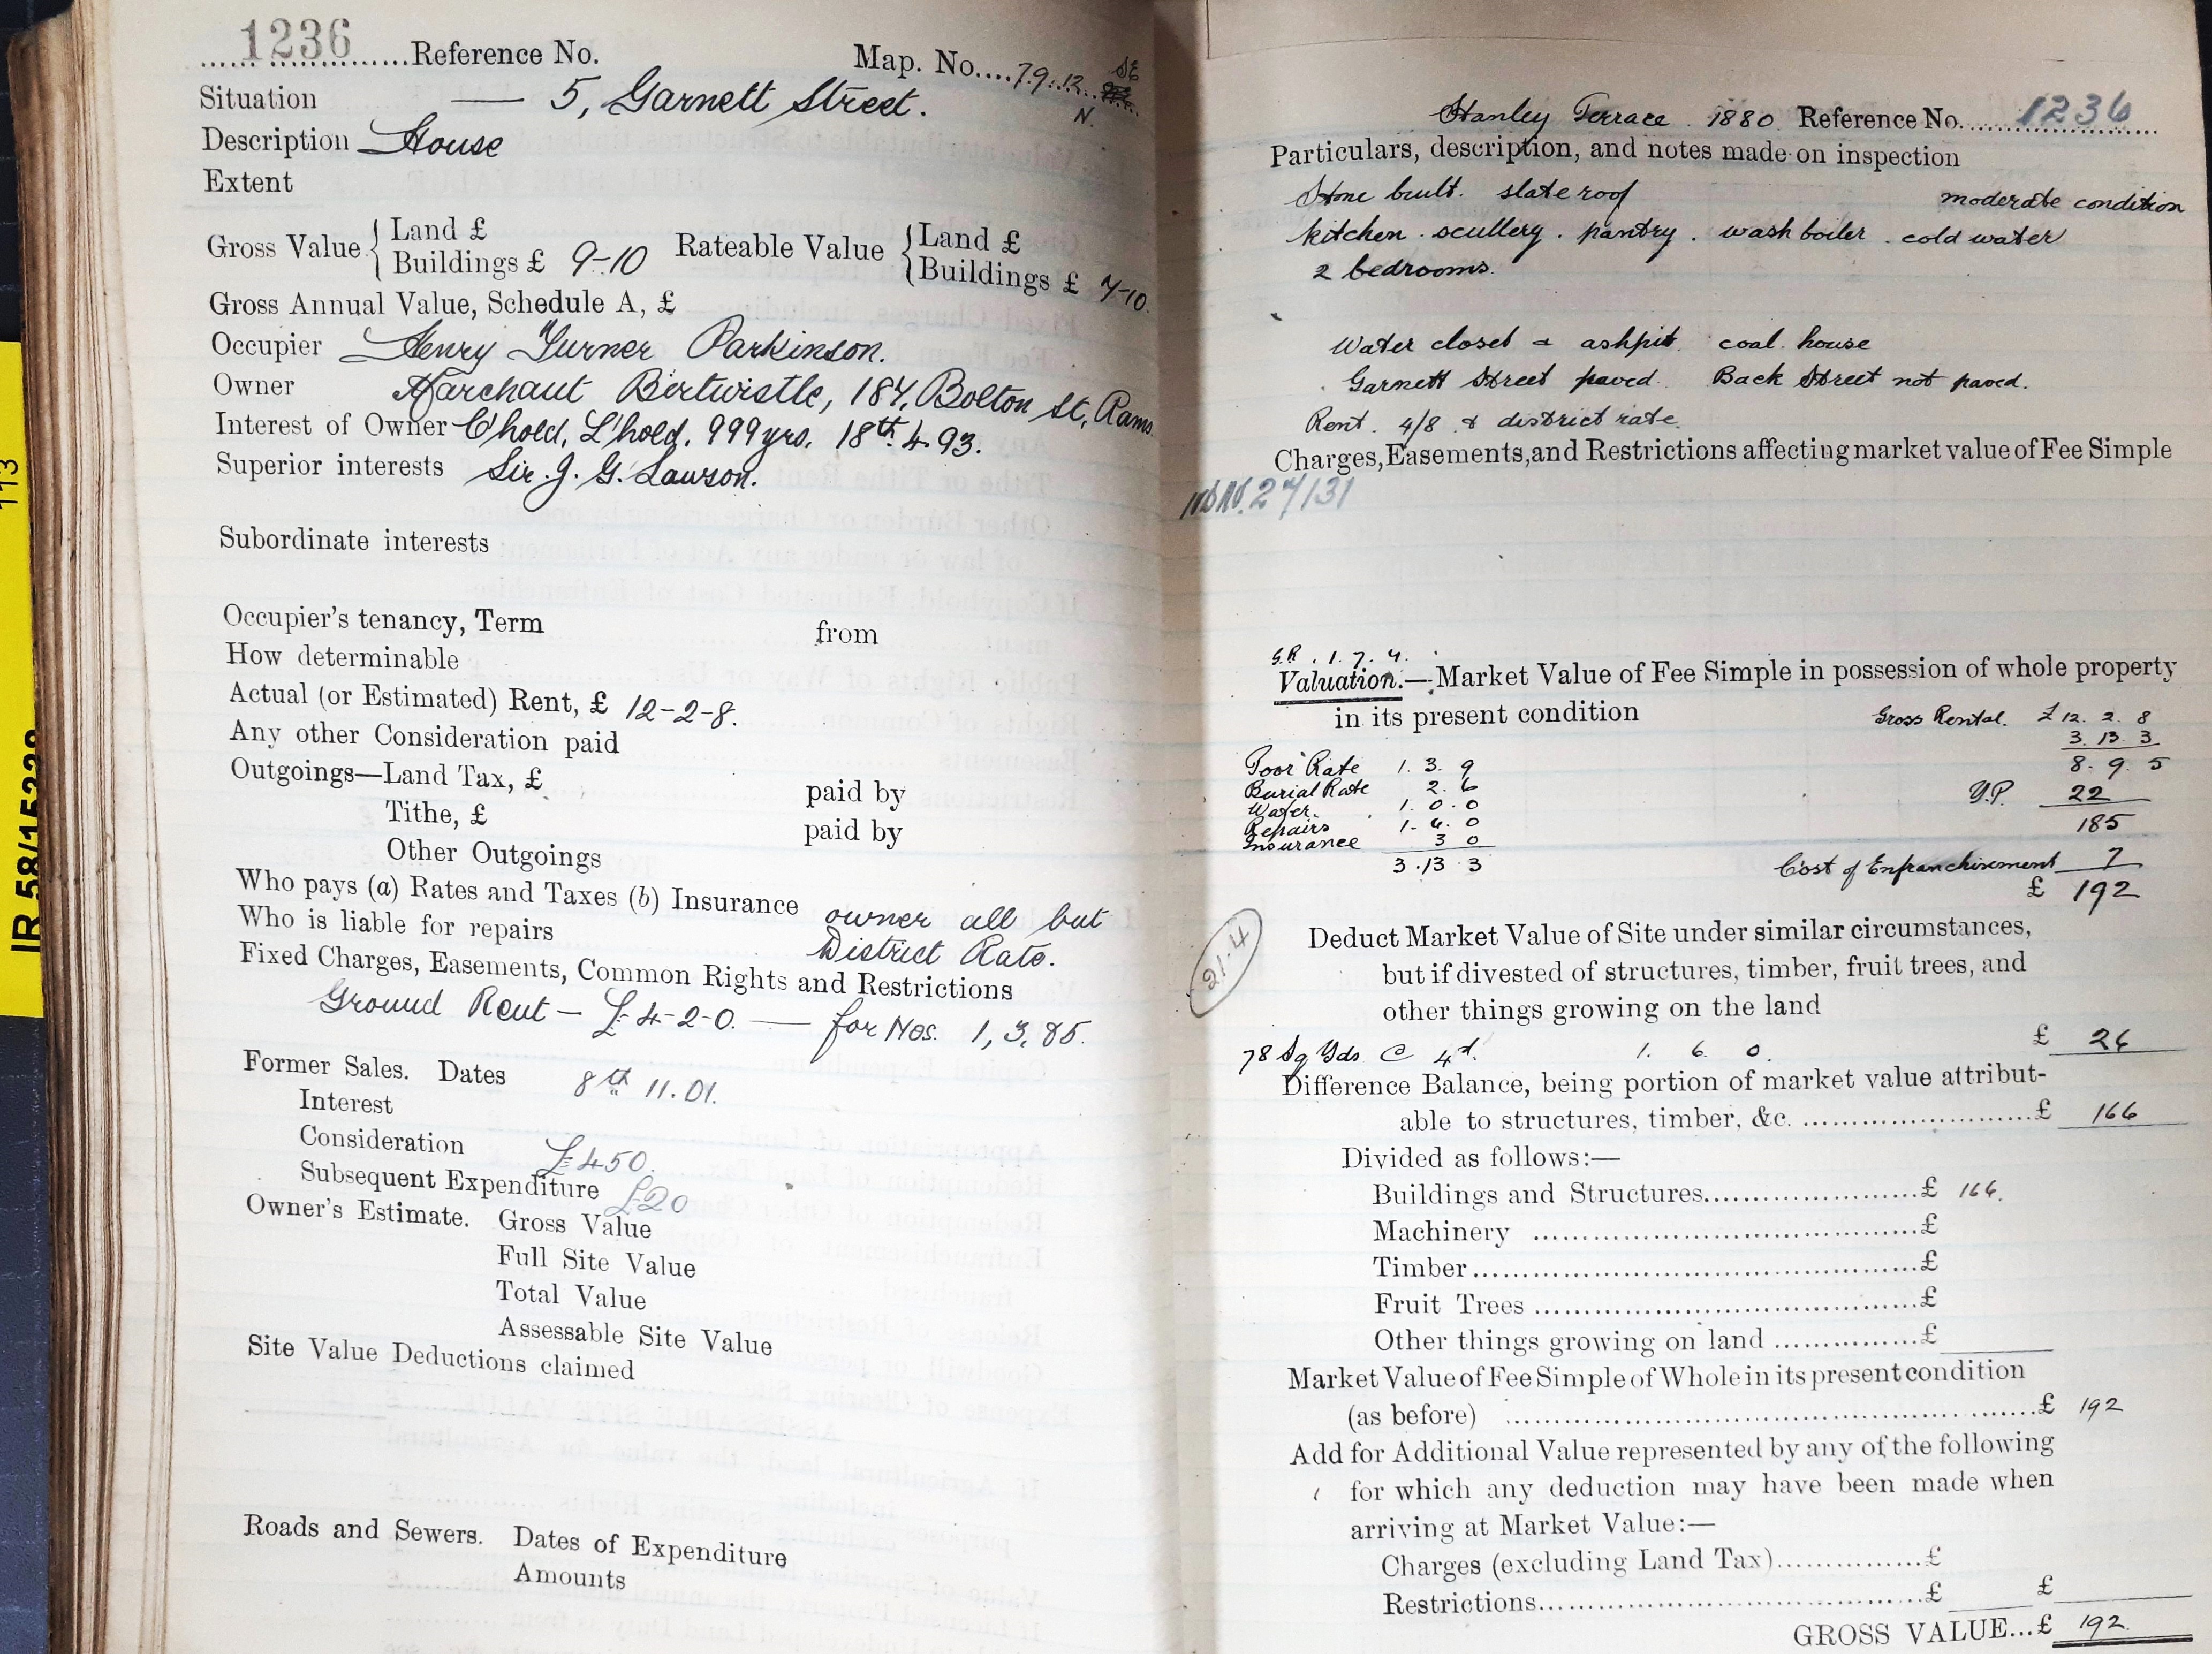 1236 Reference No. Map. No. 79.12 SE
N.
Situation — 5, Garnett Street.
Description House
Extent
Gross Value { Land £
Buildings £ 9-10
Rateable Value { Land £
Buildings £ 7-10
Gross Annual Value, Schedule A, £
Occupier Henry Turner Parkinson.
Owner Marchant Birtwistle, 187, Bolton St, Rams
Interest of Owner C'hold, L'hold. 999 yrs. 18th 4. 93.
Superior interests Sir. J. G. Lawson.
Subordinate interests
Occupier's tenancy, Term from
How determinable
Actual (or Estimated) Rent, £ 12-2-8.
Any other Consideration paid
Outgoings—Land Tax, £ paid by
Tithe, £ paid by
Other Outgoings
Who pays (a) Rates and Taxes (b) Insurance owner all but
Who is liable for repairs District Rate.
Fixed Charges, Easements, Common Rights and Restrictions
Ground Rent — £4-2-0. — for Nos. 1, 3, & 5.
Former Sales. Dates 8th 11. 01.
Interest
Consideration £450.
Subsequent Expenditure £20
Owner's Estimate. Gross Value
Full Site Value
Total Value
Assessable Site Value
Site Value Deductions claimed
Roads and Sewers. Dates of Expenditure
Amounts
113
IR 58/15228
Stanley Terrace. 1880. Reference No. 1236
Particulars, description, and notes made on inspection
Stone built. slate roof moderate condition
kitchen. scullery. pantry. wash boiler. cold water
2 bedrooms.
Water closet & ashpit. coal house
Garnett Street paved. Back Street not paved.
Rent. 4/8 & district rate.
Charges, Easements, and Restrictions affecting market value of Fee Simple
27/31
G.R. 1. 7. 4.
Valuation.—Market Value of Fee Simple in possession of whole property
in its present condition Gross Rental. £12. 2. 8
3. 13. 3
Poor Rate 1. 3. 9 8. 9. 5
Burial Rate 2. 6 Y.P. 22
Water. 1. 0. 0
Repairs 1. 4. 0 185
Insurance 3 0
3. 13. 3 Cost of Enfranchisement 7
£ 192
21.4
Deduct Market Value of Site under similar circumstances,
but if divested of structures, timber, fruit trees, and
other things growing on the land
78 Sq Yds @ 4d. 1. 6. 0. £ 26
Difference Balance, being portion of market value attribut-
able to structures, timber, &c. £ 166
Divided as follows:—
Buildings and Structures £ 166.
Machinery £
Timber £
Fruit Trees £
Other things growing on land £
Market Value of Fee Simple of Whole in its present condition
(as before) £ 192
Add for Additional Value represented by any of the following
for which any deduction may have been made when
arriving at Market Value:—
Charges (excluding Land Tax) £
Restrictions £ £
GROSS VALUE...£ 192.